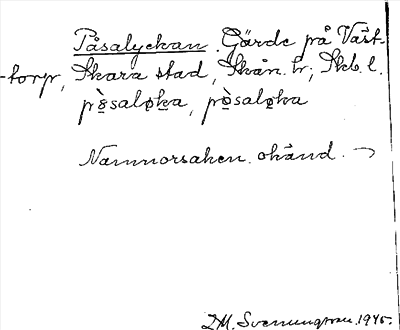 Påsalyckan. Gärde på Väst-
torp, Skara stad, Skån. hr; Skb. l.
pòsaløka, pòsaløka
Namnorsaken okänd.
D.M. Svenungsson. 1945.